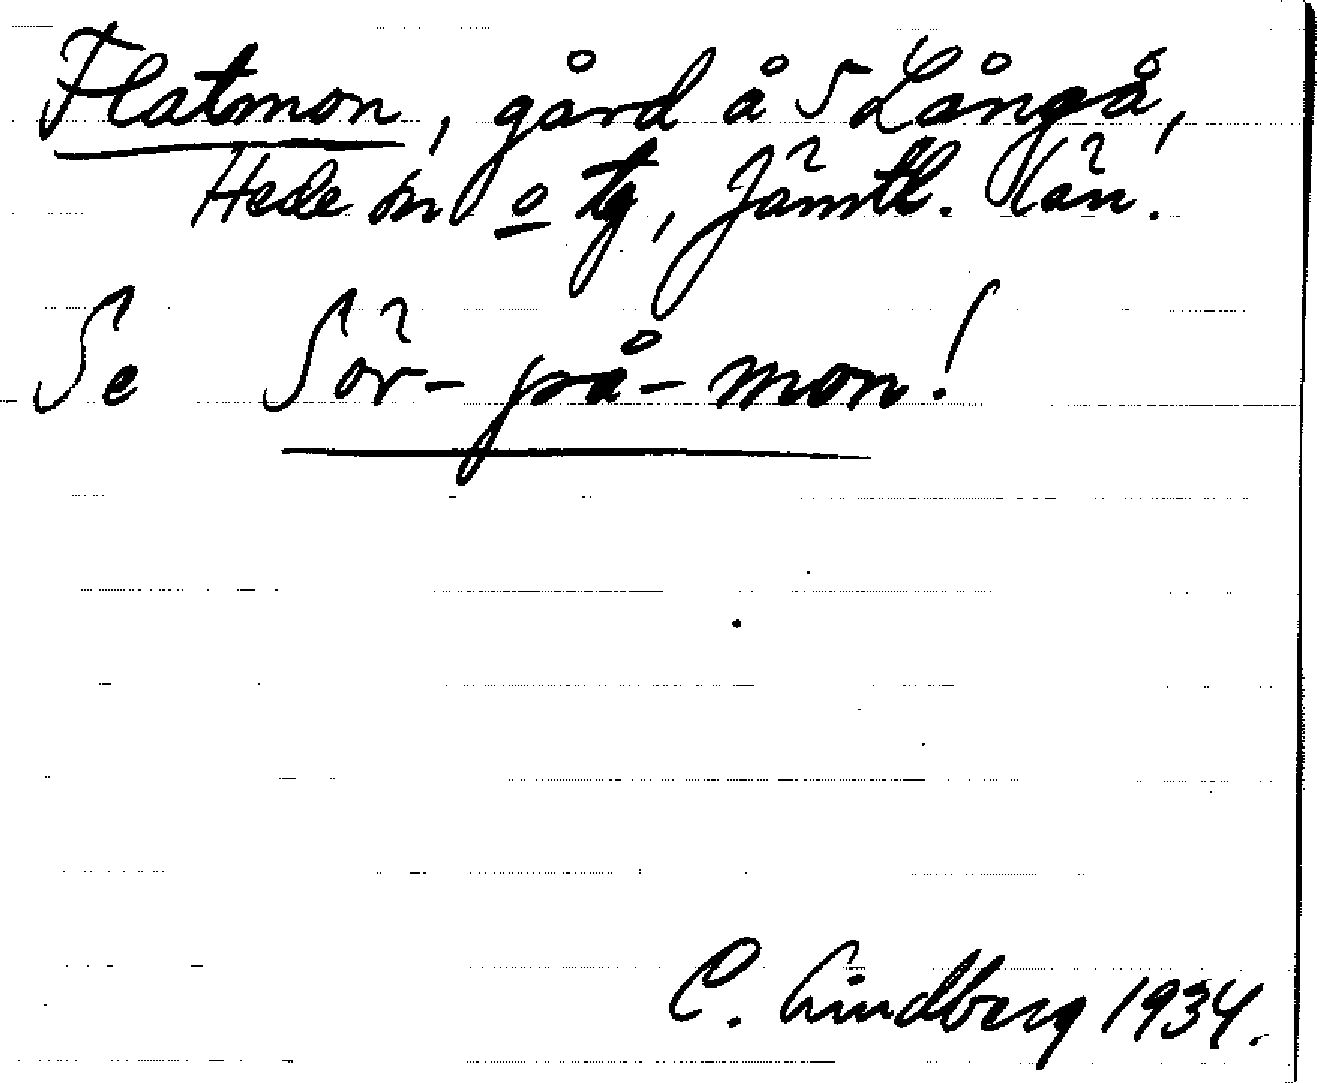 Flatmon, gård å S Långå,
Hede sn o tg, Jämtl. län.
Se Sör-på-mon!
C. Lindberg 1934.